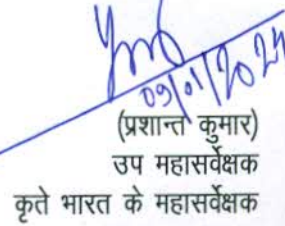 09/01/2024
(प्रशान्त कुमार)
उप महासर्वेक्षक
कृते भारत के महासर्वेक्षक